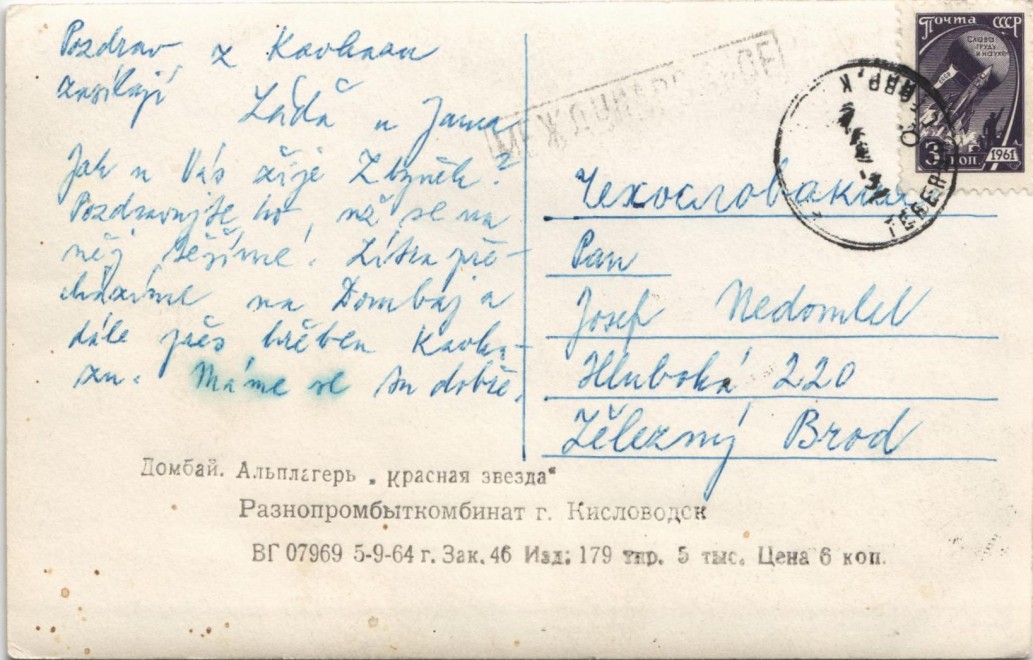 Pozdrav z Kavkazu
zasílají
Láďa a Jana
Jak u Vás žije Zbyněk?
Pozdravujte ho, už se na
něj těšíme. Zítra pře-
cházíme na Dombaj a
dále přes hřeben Kavka-
zu. Máme se tu dobře.
МЕЖДУНАРОДНОЕ
Почта СССР
СЛАВА
ТРУДУ
И НАУКЕ
3 КОП 1961
Чехословакия
Pan
Josef Nedomlel
Hluboká 220
Železný Brod
Домбай. Альплагерь „Красная звезда“
Разнопромбыткомбинат г. Кисловодск
ВГ 07969 5-9-64 г. Зак. 46 Изд: 179 тир. 5 тыс. Цена 6 коп.